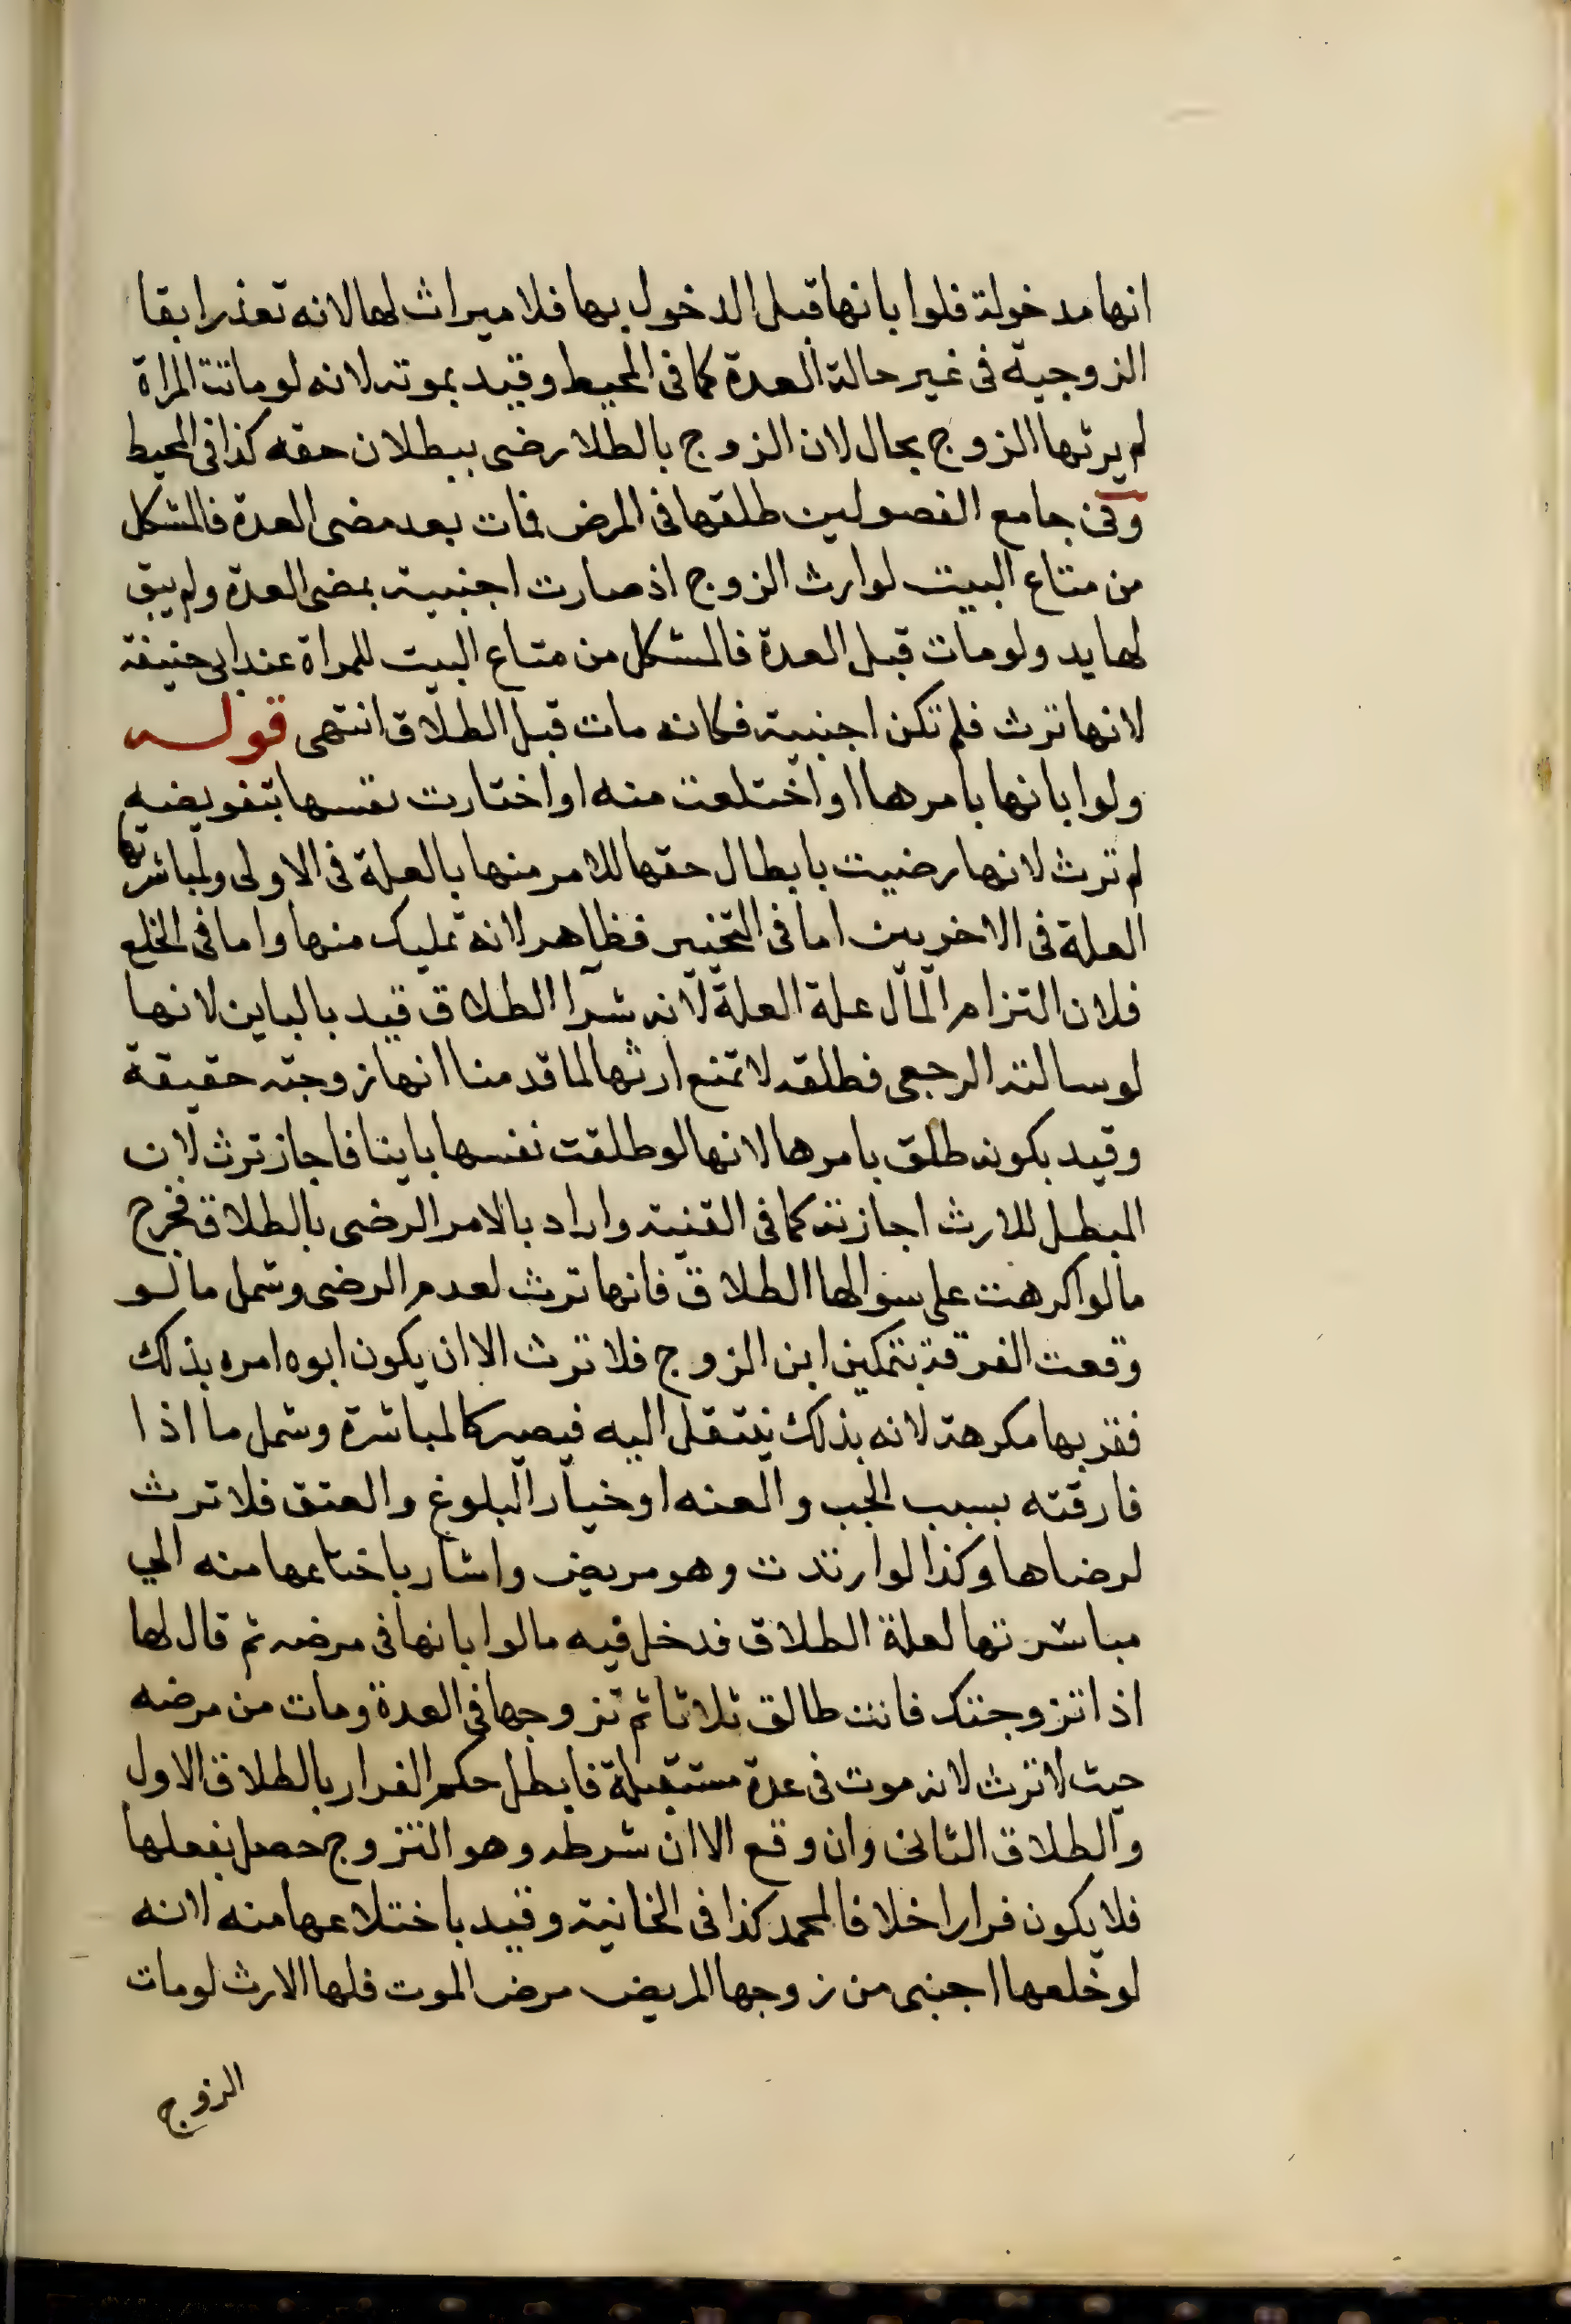 انها مدخولة فلو ابانها قبل الدخول بها فلا ميراث لها لانه تعذر ابقا
الزوجية فى غير حالة العدة كما فى المحيط وقيد بموته لانه لو ماتت المراة
لم يرثها الزوج بحال لان الزوج بالطلا رضى ببطلان حقه كذا فى المحيط
وفى جامع الفصولين طلقها فى المرض فمات بعد مضى العدة فالمشكل
من متاع البيت لوارث الزوج اذ صارت اجنبية بمضى العدة ولم يبق
لها يد ولو مات قبل العدة فالمشكل من متاع البيت للمراة عند ابى حنيفة
لانها ترث فلم تكن اجنبية فكانه مات قبل الطلاق انتهى قوله
ولو ابانها بامرها او اختلعت منه او اختارت نفسها بتفويضه
لم ترث لانها رضيت بابطال حقها للامر منها بالعلة فى الاولى ولمباشرتها
العلة فى الاخريين اما فى التخيير فظاهر لانه تمليك منها واما فى الخلع
فلان التزام المال علة العلة لانه شرا الطلاق قيد بالباين لانها
لو سالته الرجعى فطلقه لا تمنع ارثها لما قدمنا انها زوجته حقيقة
وقيد بكونه طلق بامرها لانها لو طلقت نفسها باينا فاجاز ترث لان
المبطل للارث اجازته كما فى القنية واراد بالامر الرضى بالطلاق فخرج
ما لو اكرهت على سوالها الطلاق فانها ترث لعدم الرضى وشمل ما لو
وقعت الفرقة بتمكين ابن الزوج فلا ترث الا ان يكون ابوه امره بذلك
فقربها مكرهة لانه بذلك ينتقل اليه فيصير كالمباشرة وشمل ما اذا
فارقته بسبب الجب والعنه او خيار البلوغ والعتق فلا ترث
لرضاها وكذا لو ارتدت وهو مريض واشار باختاعها منه الي
مباشرتها لعلة الطلاق فدخل فيه ما لو ابانها فى مرضه ثم قال لها
اذا تزوجتك فانت طالق ثلاثا ثم تزوجها فى العدة ومات من مرضه
حيث لا ترث لانه موت فى عدة مستقبلة فابطل حكم الفرار بالطلاق الاول
والطلاق الثانى وان وقع الا ان شرطه وهو التزوج حصل بفعلها
فلا يكون فرارا خلافا لمحمد كذا فى الخانية وقيد باختلاعها منه لانه
لو خلعها اجنبى من زوجها المريض مرض الموت فلها الارث لو مات
الزوج